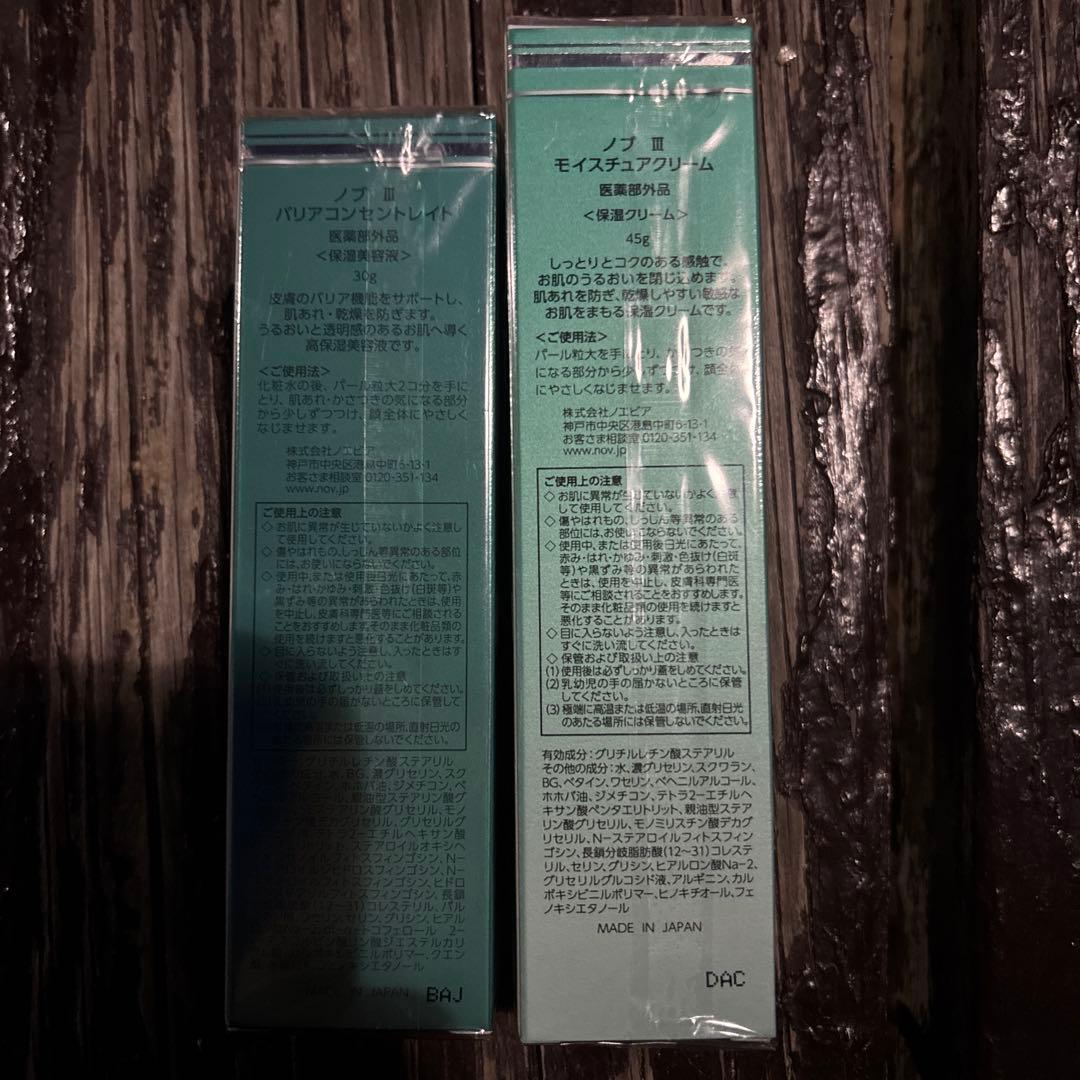 ノブ Ⅲ
バリアコンセントレイト
医薬部外品
＜保湿美容液＞
30g
皮膚のバリア機能をサポートし、
肌あれ・乾燥を防ぎます。
うるおいと透明感のあるお肌へ導く
高保湿美容液です。
＜ご使用法＞
化粧水の後、パール粒大2コ分を手に
とり、肌あれ・かさつきの気になる部分
から少しずつつけ、顔全体にやさしく
なじませます。
株式会社ノエビア
神戸市中央区港島中町6-13-1
お客さま相談室 0120-351-134
www.nov.jp
ご使用上の注意
◇ お肌に異常が生じていないかよく注意し
て使用してください。
◇ 傷やはれもの、しっしん等異常のある部位
には、お使いにならないでください。
◇ 使用中、または使用後日光にあたって、赤
み・はれ・かゆみ・刺激・色抜け(白斑等)や
黒ずみ等の異常があらわれたときは、使用
を中止し、皮膚科専門医等にご相談される
ことをおすすめします。そのまま化粧品類の
使用を続けますと悪化することがあります。
◇ 目に入らないよう注意し、入ったときはす
ぐに洗い流してください。
◇ 保管および取扱い上の注意
(1)使用後は必ずしっかり蓋をしめてください。
乳幼児の手の届かないところに保管して
ください。
または低温の場所、直射日光の
あたる場所には保管しないでください。
グリチルレチン酸ステアリル
水、BG、濃グリセリン、スク
ホホバ油、ジメチコン、ベ
親油型ステアリン酸グ
ステアリン酸グリセリル、モノ
デカグリセリル、グリセリルグ
テトラ2ーエチルヘキサン酸
ステアロイルオキシヘ
フィトスフィンゴシン、Nー
ヒドロスフィンゴシン、Nー
フィトスフィンゴシン、ヒドロ
スフィンゴシン、長鎖
12～31)コレステリル、パル
セリン、グリシン、ヒアル
トコフェロール 2ー
リン酸ジエステルカリ
ビニルポリマー、クエン
フェノキシエタノール
MADE IN JAPAN
BAJ
ノブ Ⅲ
モイスチュアクリーム
医薬部外品
＜保湿クリーム＞
45g
しっとりとコクのある感触で、
お肌のうるおいを閉じ込めます。
肌あれを防ぎ、乾燥しやすい敏感な
お肌をまもる保湿クリームです。
＜ご使用法＞
パール粒大を手にとり、かさつきの気
になる部分から少しずつつけ、顔全体
にやさしくなじませます。
株式会社ノエビア
神戸市中央区港島中町6-13-1
お客さま相談室 0120-351-134
www.nov.jp
ご使用上の注意
◇ お肌に異常が生じていないかよく注意
して使用してください。
◇ 傷やはれもの、しっしん等異常のある
部位には、お使いにならないでください。
◇ 使用中、または使用後日光にあたって、
赤み・はれ・かゆみ・刺激・色抜け(白斑
等)や黒ずみ等の異常があらわれた
ときは、使用を中止し、皮膚科専門医
等にご相談されることをおすすめします。
そのまま化粧品類の使用を続けますと
悪化することがあります。
◇ 目に入らないよう注意し、入ったときは
すぐに洗い流してください。
◇ 保管および取扱い上の注意
(1)使用後は必ずしっかり蓋をしめてください。
(2)乳幼児の手の届かないところに保管
してください。
(3)極端に高温または低温の場所、直射日光
のあたる場所には保管しないでください。
有効成分：グリチルレチン酸ステアリル
その他の成分：水、濃グリセリン、スクワラン、
BG、ベタイン、ワセリン、ベヘニルアルコール、
ホホバ油、ジメチコン、テトラ2ーエチルヘ
キサン酸ペンタエリトリット、親油型ステア
リン酸グリセリル、モノミリスチン酸デカグ
リセリル、Nーステアロイルフィトスフィン
ゴシン、長鎖分岐脂肪酸(12～31)コレステ
リル、セリン、グリシン、ヒアルロン酸Naー2、
グリセリルグルコシド液、アルギニン、カル
ボキシビニルポリマー、ヒノキチオール、フェ
ノキシエタノール
MADE IN JAPAN
DAC